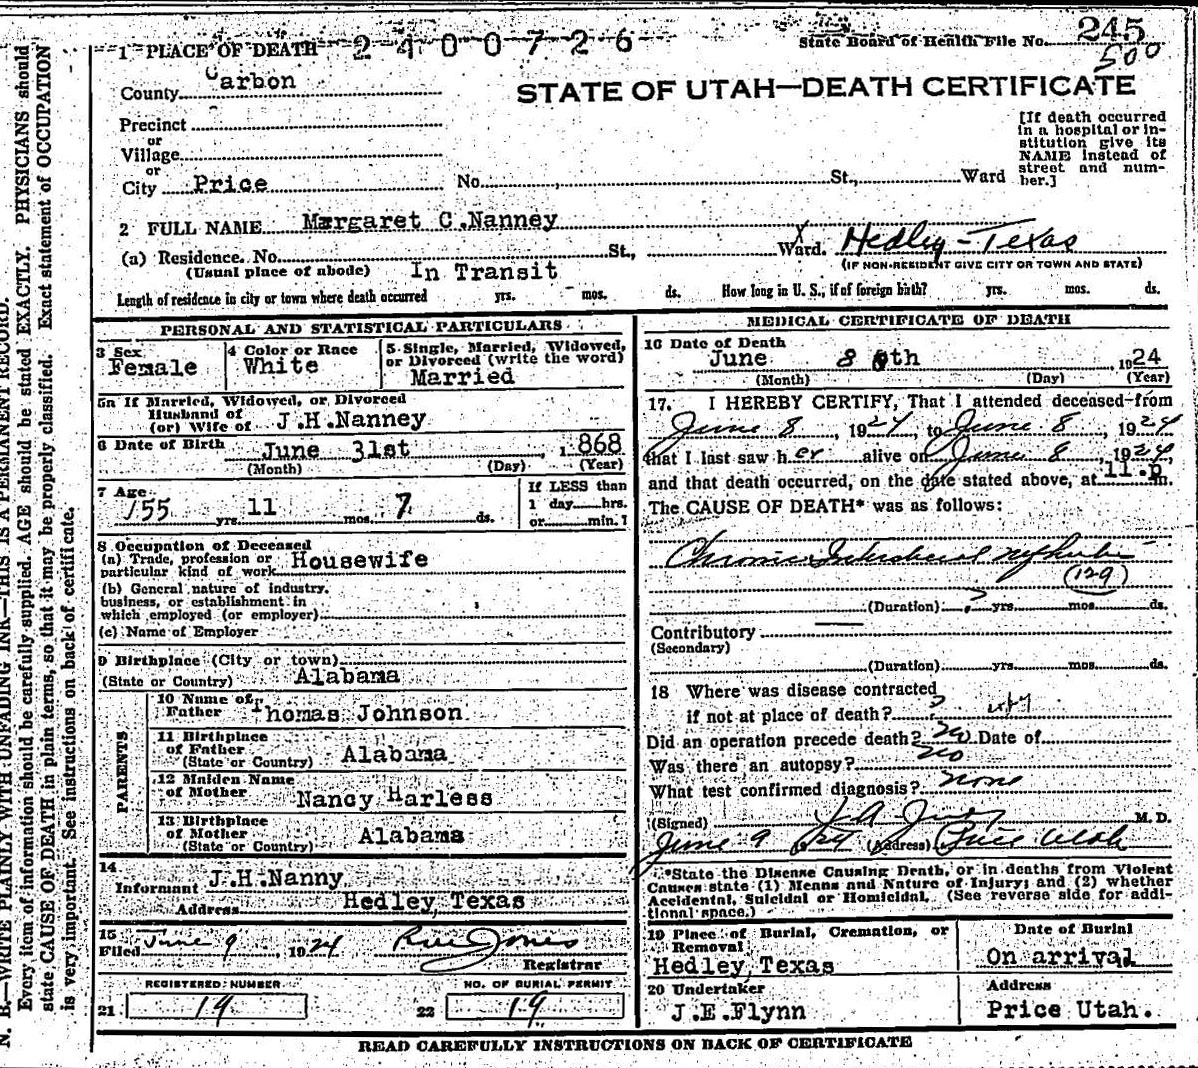 1 PLACE OF DEATH 2400726
State Board of Health File No. 245
500
County Carbon
STATE OF UTAH—DEATH CERTIFICATE
Precinct
or
Village
or
City Price No. , St., Ward
[If death occurred
in a hospital or in-
stitution give its
NAME instead of
street and num-
ber.]
2 FULL NAME Margaret C.Nanney
(a) Residence. No. St., Ward. Hedley-Texas
(Usual place of abode) In Transit (IF NON-RESIDENT GIVE CITY OR TOWN AND STATE)
Length of residence in city or town where death occurred yrs. mos. ds. How long in U. S., if of foreign birth? yrs. mos. ds.
PERSONAL AND STATISTICAL PARTICULARS
3 Sex
Female
4 Color or Race
White
5 Single, Married, Widowed,
or Divorced (write the word)
Married
5a If Married, Widowed, or Divorced
Husband of
(or) Wife of J.H.Nanney
6 Date of Birth June 31st , 1868
(Month) (Day) (Year)
7 Age
55 yrs. 11 mos. 7 ds.
If LESS than
1 day hrs.
or min. ?
8 Occupation of Deceased
(a) Trade, profession or
particular kind of work Housewife
(b) General nature of industry,
business, or establishment in
which employed (or employer)
(c) Name of Employer
9 Birthplace (City or town)
(State or Country) Alabama
PARENTS
10 Name of
Father Thomas Johnson
11 Birthplace
of Father
(State or Country) Alabama
12 Maiden Name
of Mother Nancy Harless
13 Birthplace
of Mother
(State or Country) Alabama
14
Informant J.H.Nanny
Address Hedley, Texas
15
Filed June 9, 1924
Registrar
REGISTERED NUMBER
21 19
NO. OF BURIAL PERMIT
22 19
MEDICAL CERTIFICATE OF DEATH
16 Date of Death
June 8 th , 1924
(Month) (Day) (Year)
17. I HEREBY CERTIFY, That I attended deceased from
June 8, 1924, to June 8, 1924
that I last saw her alive on June 8, 1924,
and that death occurred, on the date stated above, at 11.p m.
The CAUSE OF DEATH* was as follows:
Chronic Interstitial nephritis
(129)
(Duration) ? yrs. mos. ds.
Contributory
(Secondary)
(Duration) yrs. mos. ds.
18 Where was disease contracted
if not at place of death? ?
Did an operation precede death? no Date of
Was there an autopsy? no
What test confirmed diagnosis? none
(Signed) M. D.
June 9 1924 (Address) Price Utah
*State the Disease Causing Death, or in deaths from Violent
Causes state (1) Means and Nature of Injury; and (2) whether
Accidental, Suicidal or Homicidal. (See reverse side for addi-
tional space.)
19 Place of Burial, Cremation, or
Removal
Hedley, Texas
Date of Burial
On arrival
20 Undertaker
J.E.Flynn
Address
Price Utah.
READ CAREFULLY INSTRUCTIONS ON BACK OF CERTIFICATE
N. B.—WRITE PLAINLY WITH UNFADING INK—THIS IS A PERMANENT RECORD.
Every item of information should be carefully supplied. AGE should be stated EXACTLY. PHYSICIANS should
state CAUSE OF DEATH in plain terms, so that it may be properly classified. Exact statement of OCCUPATION
is very important. See instructions on back of certificate.